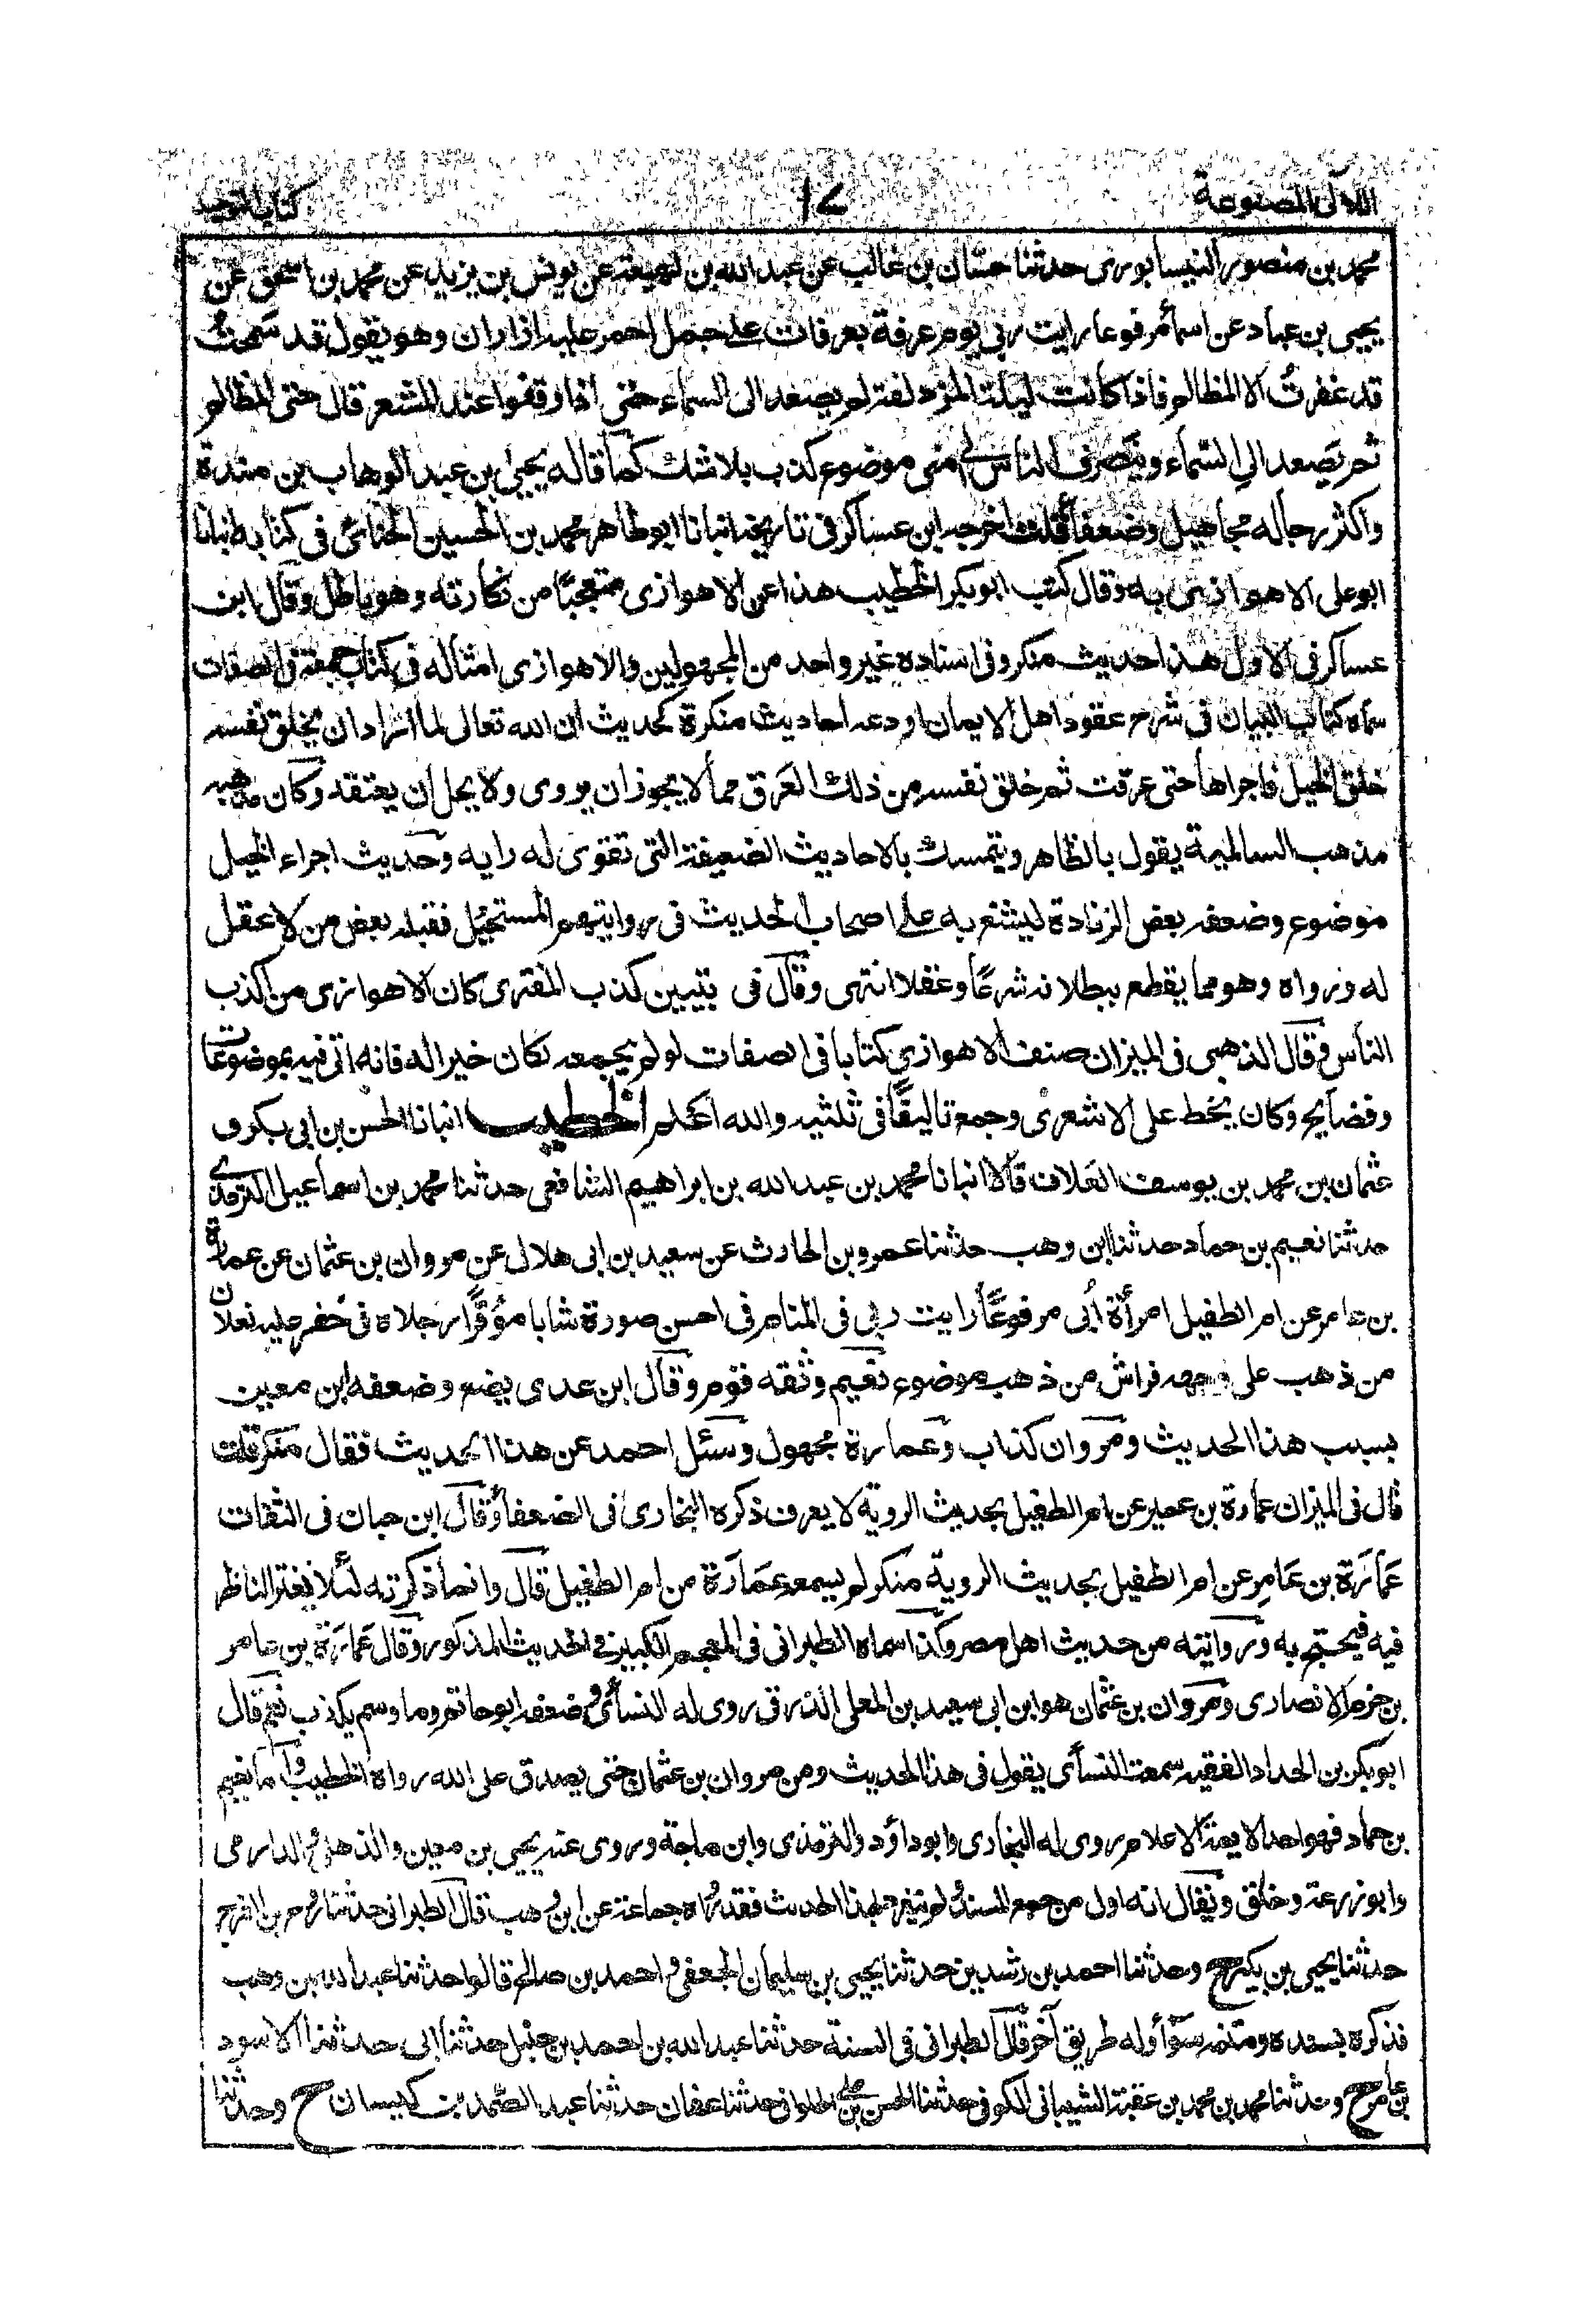 اللآلى المصنوعة ١٧ كتاب التوحيد
محمد بن منصور النيسابورى حدثنا حسان بن غالب عن عبد الله بن لهيعة عن يونس بن يزيد عن محمد بن اسحق عن
يحيى بن عباد عن اسمأ مرفوعا رايت ربى يوم عرفة بعرفات على جمل احمر عليه ازاران وهو يقول قد سمحت
قد غفرت الا المظالم فاذا كانت ليلة المزدلفة لم يصعد الى السماء حتى اذا وقفوا عند المشعر قال حتى المظالم
ثم يصعد الى السماء وينصرف الناس الى منى موضوع كذب بلا شك كما قاله يحيى بن عبد الوهاب بن مندة
واكثر رجاله مجاهيل وضعفأ قلت واخرجه ابن عساكر فى تاريخه انبانا ابو طاهر محمد بن الحسين الحنائى فى كتابه انبانا
ابو على الاهوازى به وقال كتب ابو بكر الخطيب هذا عن الاهوازى متعجبا من نكارته وهو باطل وقال ابن
عساكر فى الاول هذا حديث منكر وفى اسناده غير واحد من المجهولين والاهوازى امثاله فى كتاب جمعه فى الصفات
سماه كتاب البيان فى شرح عقود اهل الايمان اودعه احاديث منكرة كحديث ان الله تعالى لما اراد ان يخلق نفسه
خلق الخيل فاجراها حتى عرقت ثم خلق نفسه من ذلك العرق مما لا يجوز ان يروى ولا يحل ان يعتقد وكان مذهبه
مذهب السالمية يقول بالظاهر ويتمسك بالاحاديث الضعيفة التى تقوى له رايه وحديث اجراء الخيل
موضوع وضعه بعض الزنادقة ليشنع به على اصحاب الحديث فى روايتهم المستحيل فقبله بعض من لا عقل
له ورواه وهو مما يقطع ببطلانه شرعا وعقلا انتهى وقال فى تبيين كذب المفترى كان الاهوازى من اكذب
الناس وقال الذهبى فى الميزان صنف الاهوازى كتابا فى الصفات لو لم يجمعه لكان خيرا له فانه اتى فيه بموضوعات
وفضايح وكان يحط على الاشعرى وجمع تاليفا فى ثلبه والله اعلم الخطيب انبانا الحسن بن ابى بكر و
عثمان بن محمد بن يوسف العلاف قالا انبانا محمد بن عبد الله بن ابراهيم الشافعى حدثنا محمد بن اسماعيل الترمذى
حدثنا نعيم بن حماد حدثنا ابن وهب حدثنا عمرو بن الحارث عن سعيد بن ابى هلال عن مروان بن عثمان عن عمارة
بن عامر عن ام الطفيل امرأة أبى مرفوعا رايت ربى فى المنام فى احسن صورة شابا موقرا رجلاه فى خضر عليه نعلان
من ذهب على وجهه فراش من ذهب موضوع نعيم وثقه قوم وقال ابن عدى يضع وضعفه ابن معين
بسبب هذا الحديث ومروان كذاب وعمارة مجهول وسئل احمد عن هذا الحديث فقال منكر قلت
قال فى الميزان عمارة بن عمير عن ام الطفيل بحديث الروية لا يعرف ذكره البخارى فى الضعفأ وقال ابن حبان فى الثقات
عمارة بن عامر عن ام الطفيل بحديث الروية منكر لم يسمعه عمارة من ام الطفيل قال وانما ذكرته لئلا يغتر الناظر
فيه فيحتج به وروايته من حديث اهل مصر وكذا سماه الطبرانى فى المعجم الكبير فى الحديث المذكور وقال عمارة بن عامر
بن حزم الانصارى ومروان بن عثمان هو ابن ابى سعيد بن المعلى الزرقى روى له النسأى وضعفه ابو حاتم وما وسم بكذب نعم قال
ابو بكر بن الحداد الفقيه سمعت النسأى يقول فى هذا الحديث ومن مروان بن عثمان حتى يصدق على الله رواه الخطيب واما نعيم
بن حماد فهو احد الايمة الاعلام روى له البخارى وابو داؤد والترمذى وابن ماجة وروى عنه يحيى بن معين والذهلى والدارمى
وابو زرعة وخلق ويقال انه اول من جمع المسند ولم ينفرد بهذا الحديث فقد رواه جماعة عن ابن وهب قال الطبرانى حدثنا روح بن الفرج
حدثنا يحيى بن بكير ح وحدثنا احمد بن رشدين حدثنا يحيى بن سليمان الجعفى واحمد بن صالح قالوا حدثنا عبد الله بن وهب
فذكره بسنده ومتنه سوأ وله طريق آخر قال الطبرانى فى السنة حدثنا عبد الله بن احمد بن حنبل حدثنا ابى حدثنا الاسود
بن عامر ح وحدثنا محمد بن محمد بن عقبة الشيبانى الكوفى حدثنا الحسن بن على الحلوانى حدثنا عفان حدثنا عبد الصمد بن كيسان ح وحدثنا